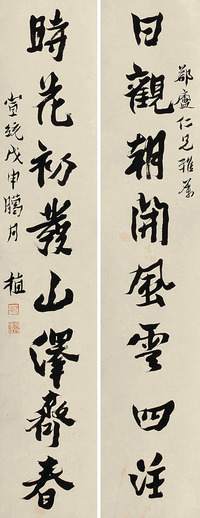 鄰盧仁兄雅屬
日觀朝開風雲四注
時花初發山澤齊春
宣統戊申臈月
植